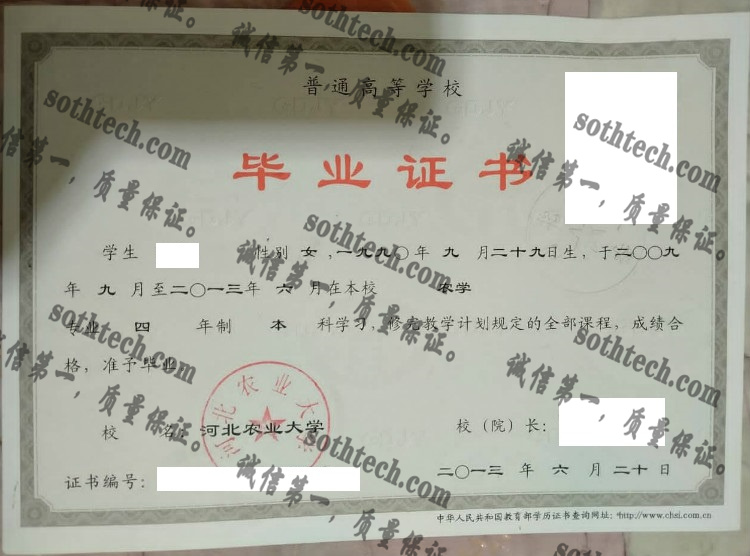 普通高等学校
毕业证书
学生 性别 女 ,一九九〇年 九 月二十九日生，于二〇〇九
年 九 月至二〇一三年 六 月在本校 农学
专业 四 年制 本 科学习，修完教学计划规定的全部课程，成绩合
格，准予毕业
河北农业大学
校 名： 河北农业大学 校（院）长：
二〇一三 年 六 月 二十 日
证书编号：
中华人民共和国教育部学历证书查询网址：http://www.chsi.com.cn
sothtech.com
诚信第一，质量保证。
sothtech.com
诚信第一，质量保证。
sothtech.com
诚信第一，质量保证。
sothtech.com
诚信第一，质量保证。
sothtech.com
诚信第一，质量保证。
sothtech.com
诚信第一，质量保证。
sothtech.com
诚信第一，质量保证。
sothtech.com
诚信第一，质量保证。
sothtech.com
诚信第一，质量保证。